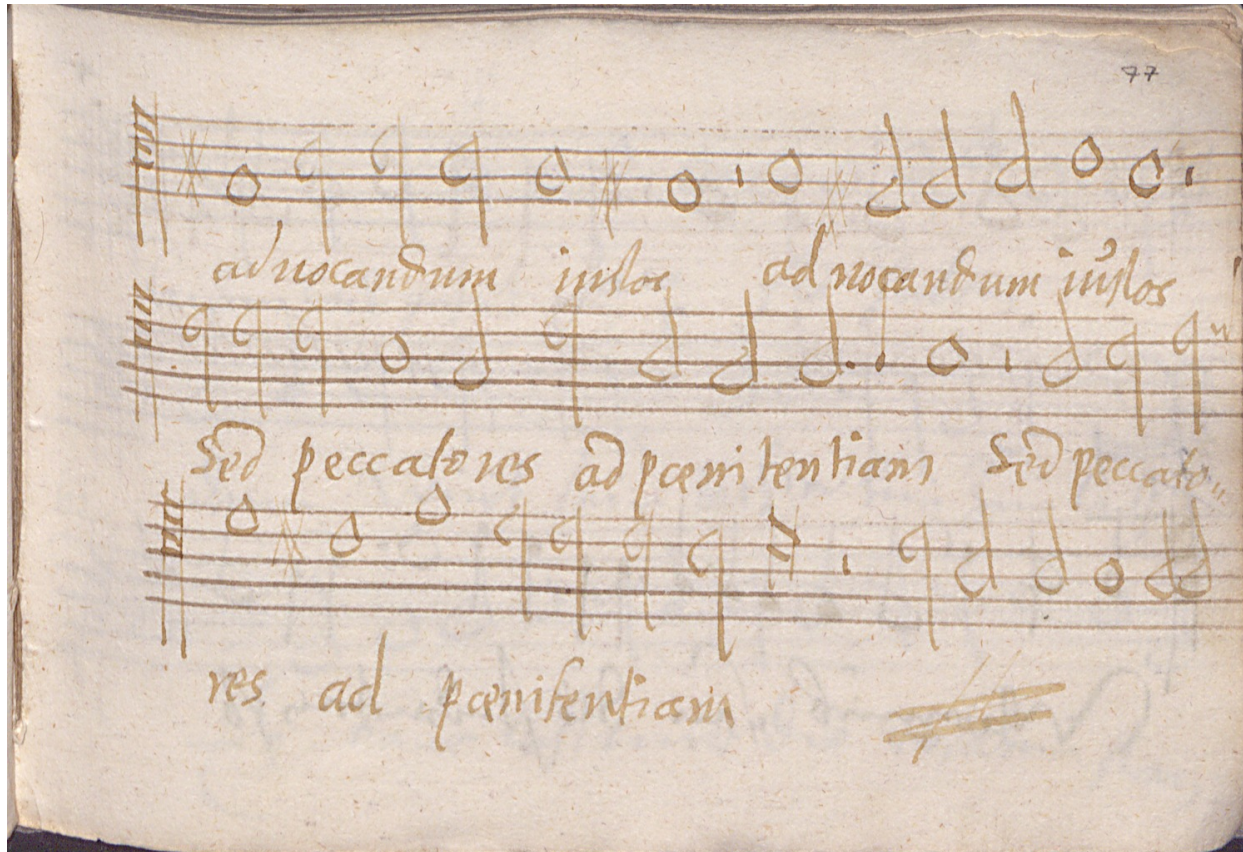 77
ad vocandum iustos ad vocandum iustos
Sed peccatores ad pœnitentiam Sed peccato„
res ad pœnitentiam